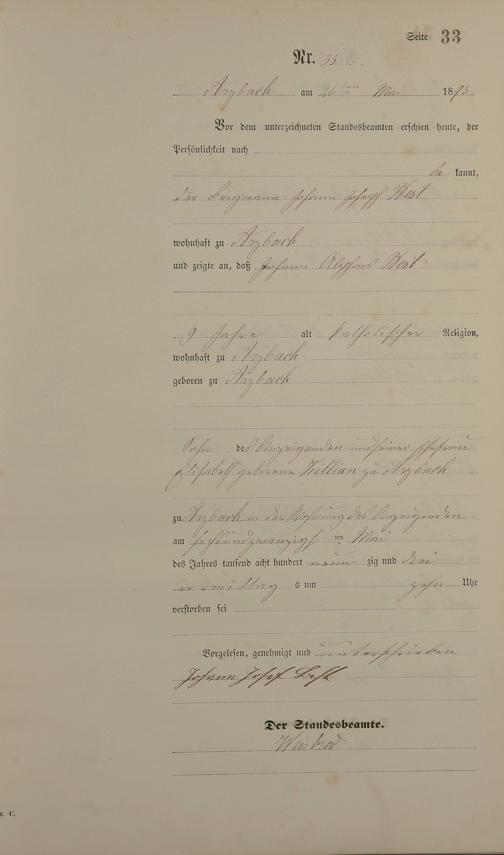 Seite 33
Nr. 33.
Arzbach am 26ten Mai 1893
Vor dem unterzeichneten Standesbeamten erschien heute, der
Persönlichkeit nach
be kannt,
der Bergmann Johann Joseph Best
wohnhaft zu Arzbach
und zeigte an, daß Johann Alphons Best
9 Jahre alt katholischer Religion,
wohnhaft zu Arzbach
geboren zu Arzbach
Sohn des Anzeigenden und seiner Ehefrau
Elisabeth geborene Killian zu Arzbach
zu Arzbach in der Wohnung des Anzeigenden
am sechsundzwanzigsten Mai
des Jahres tausend acht hundert neun zig und drei
vormittags um zehn Uhr
verstorben sei
Vorgelesen, genehmigt und unterschrieben
Johann Josef Best
Der Standesbeamte.
Weisbrod
C.